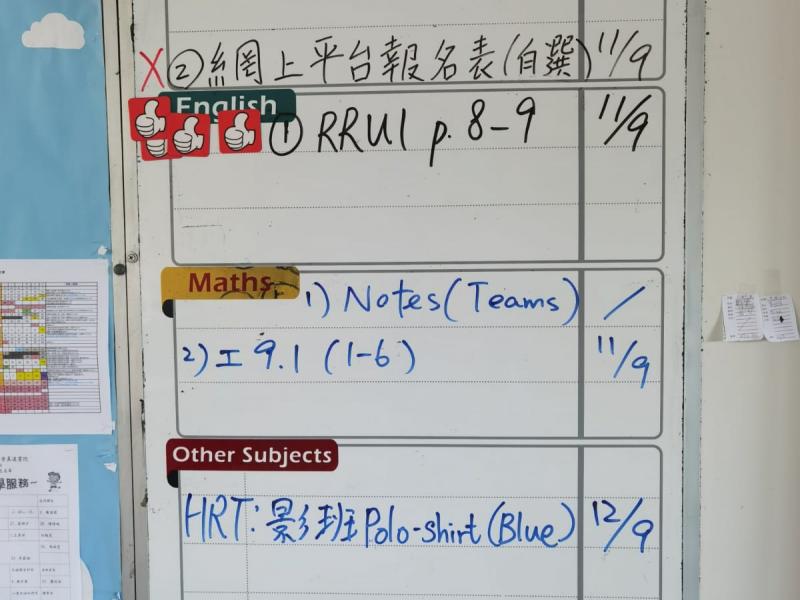 X ②網上平台報名表(自選) 11/9
English
① RRU1 p. 8-9 11/9
Maths
1) Notes (Teams) /
2) 工 9.1 (1-6) 11/9
Other Subjects
HRT: 影班Polo-shirt (Blue) 12/9